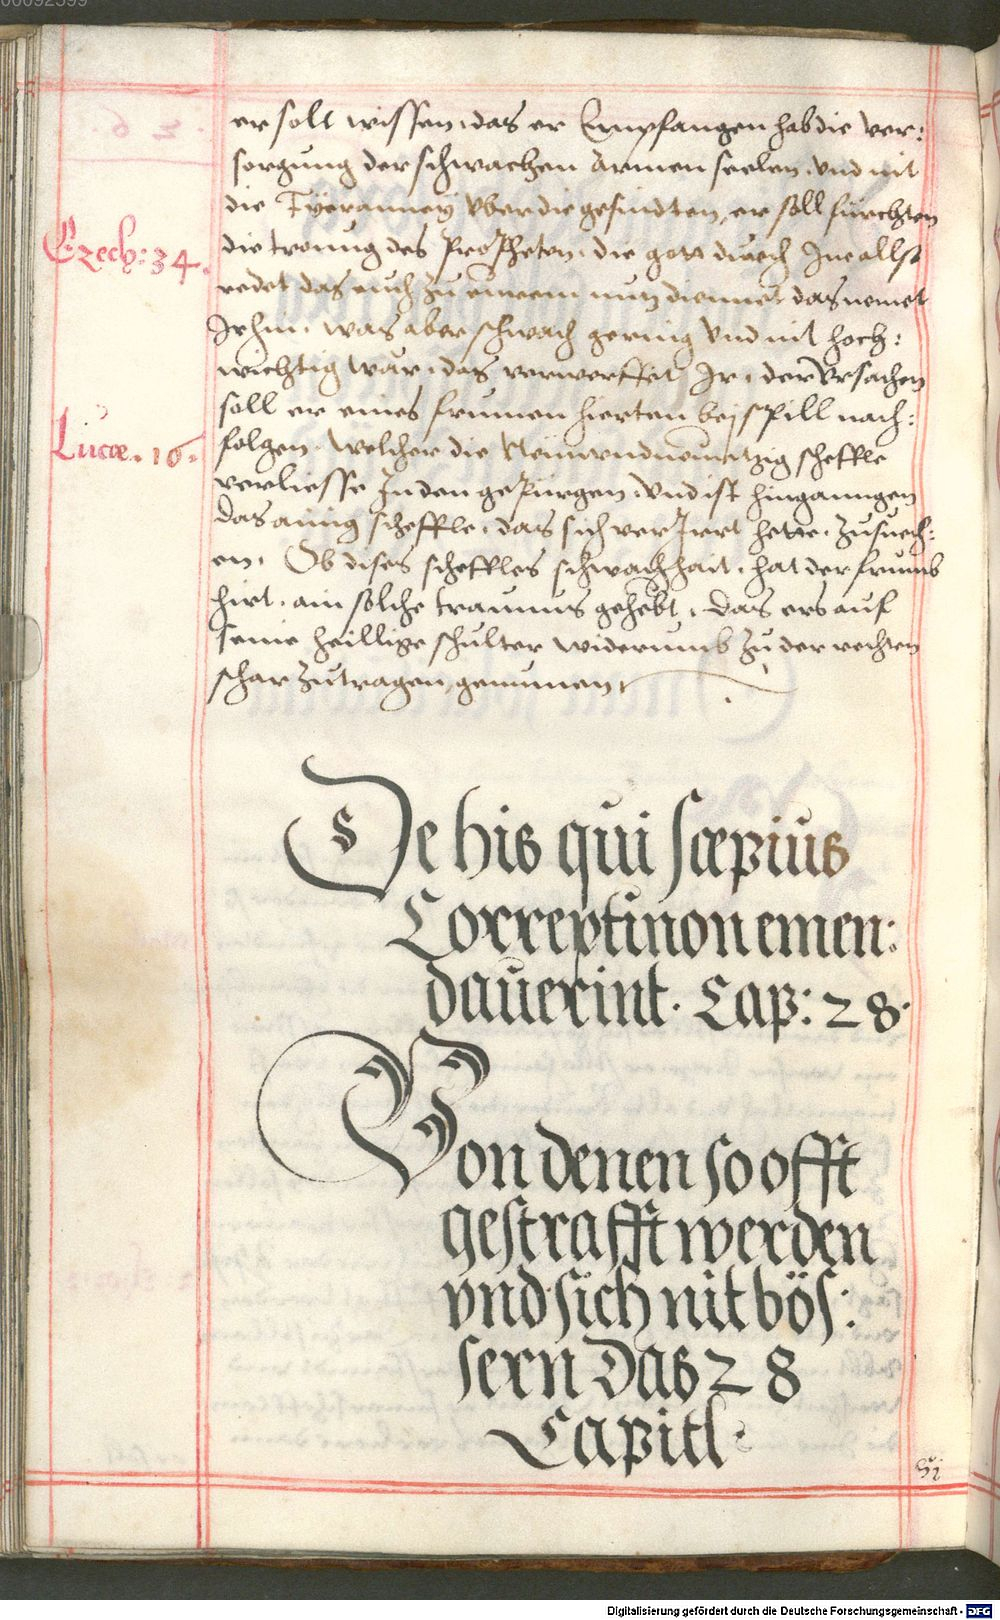 00092399
er soll wissen, das er Empfangen hab die ver:
sorgung der schwachen Armen seelen, vnd nit
die Tÿeranneÿ vber die gesundten, er soll fürchten
Ezech: 34.
die troung des Propheten, die gott durch Ine allso
redet das euch zu eurem nutz diennet das nemet
Ir hin, was aber schwach gering vnd nit hoch:
wichtig war, das verwerffet Ir, der Vrsachen
soll er eines frumen hierten beÿspill nach:
Lucæ. 15.
folgen, welcher die Neünvndneuntzig scheffle
verliesse In den gepürgen, vnd ist hinganngen
das ainig scheffle, das sich ver Irrt hette, zusuech:
en, Ob dises scheffles schwachhait, hat der frumb
hirt, ain solche traurnus gehebt, das ers auf
seine heillige schulter widerumb zu der rechten
schar zutragen, genumen,
De his qui sæpius
Correpti non emen:
dauerint. Cap: 28.
Von denen so offt
gestrafft werden
vnd sich nit bös:
sern Das 28
Capitl
Si
Digitalisierung gefördert durch die Deutsche Forschungsgemeinschaft - DFG